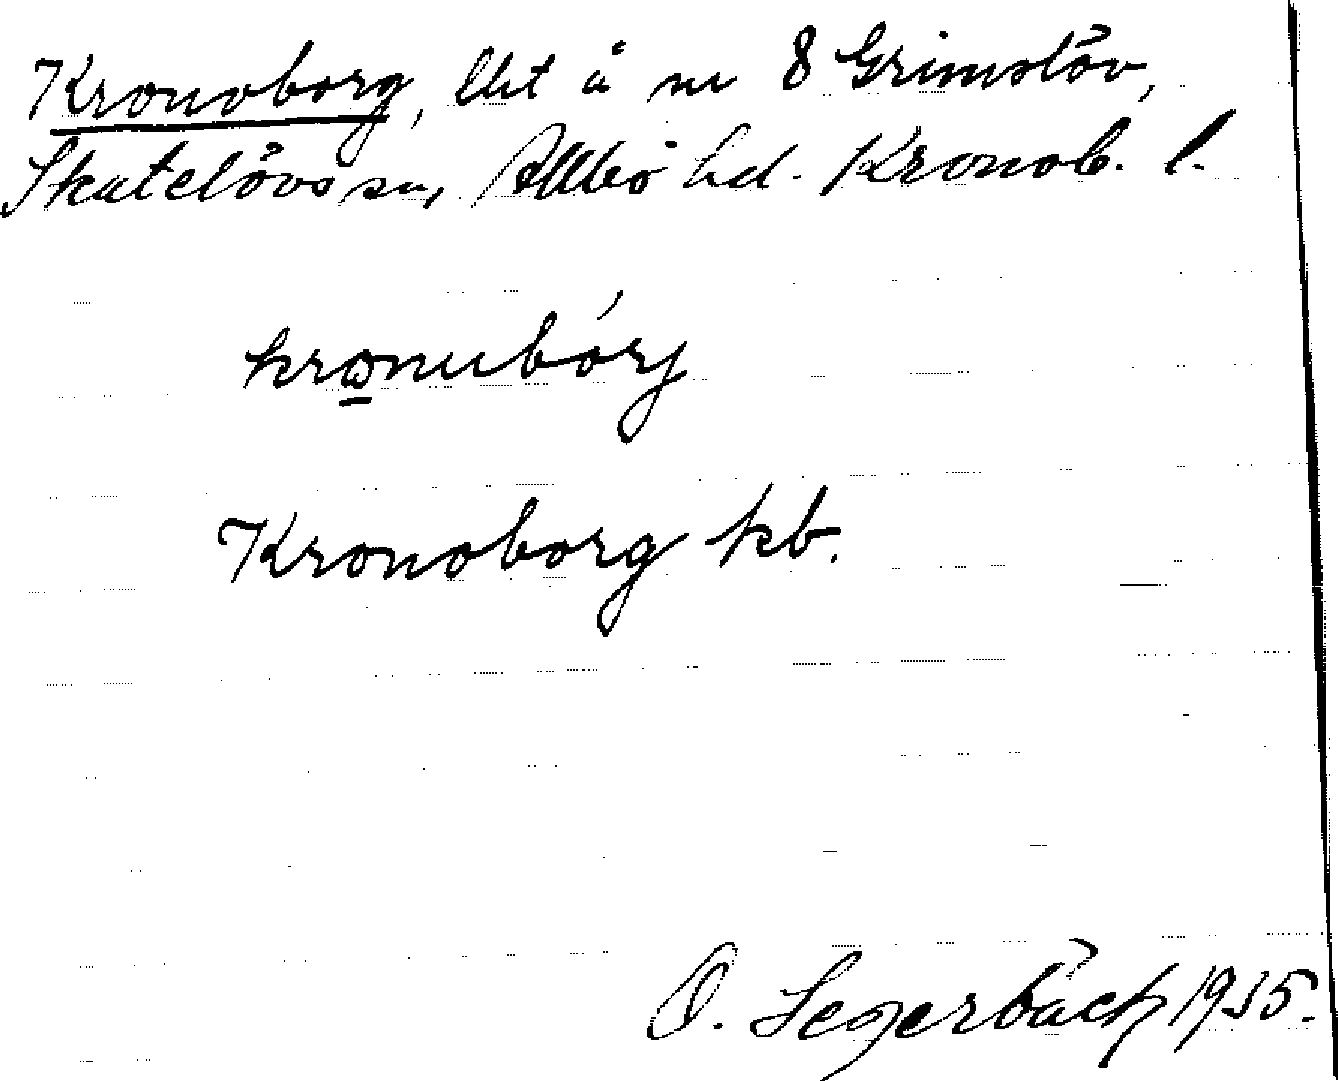 Kronoborg, lht å nr 8 Grimslöv,
Skatelövs sn, Allbo hd. Kronob. l.
kronubórj
Kronoborg kb.
O. Segerbäck 1935.